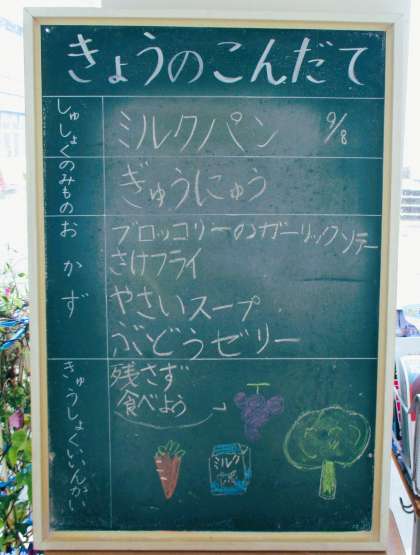 きょうのこんだて
しゅしょく
ミルクパン 9/8
のみもの
ぎゅうにゅう
おかず
ブロッコリーのガーリックソテー
さけフライ
やさいスープ
ぶどうゼリー
きゅうしょくいいんかい
残さず
食べよう
ミルク